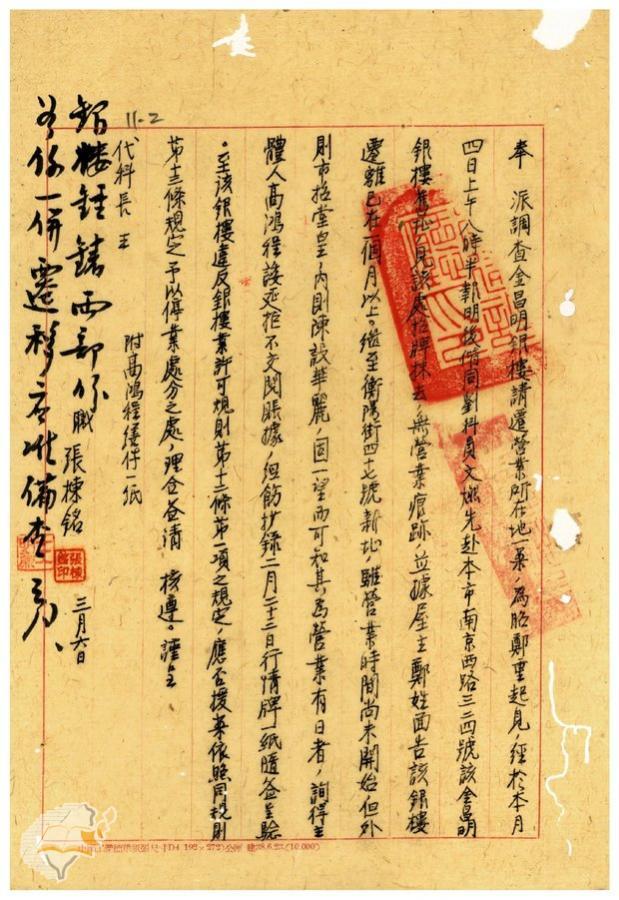 奉　派調查金昌明銀樓請遷營業所在地一案，為昭鄭重起見，經於本月
四日上午八時半報明後偕同劉科員文嫩先赴本市南京西路三二四號該金昌明
銀樓舊址，見該處招牌抹去，無營業痕跡，並據屋主鄭姓面告該銀樓
遷離已在一個月以上。繼至衡陽街四十七號新址，雖營業時間尚未開始，但外
則市招堂皇，內則陳設華麗，固一望而可知其為營業有日者，詢得主
體人高鴻程諉延拒不交閱賬據，但飭抄錄二月二十三日行情牌一紙隨簽呈驗
。至該銀樓違反銀樓業許可規則第十二條第一項之規定，應否援案依照同規則
第十三條規定予以停業處分之處，理合簽請　核遵。謹呈
代科長　王
附高鴻程繕件一紙
職　張棟銘
張棟銘印
三月六日
11-2
一併遷移
備查